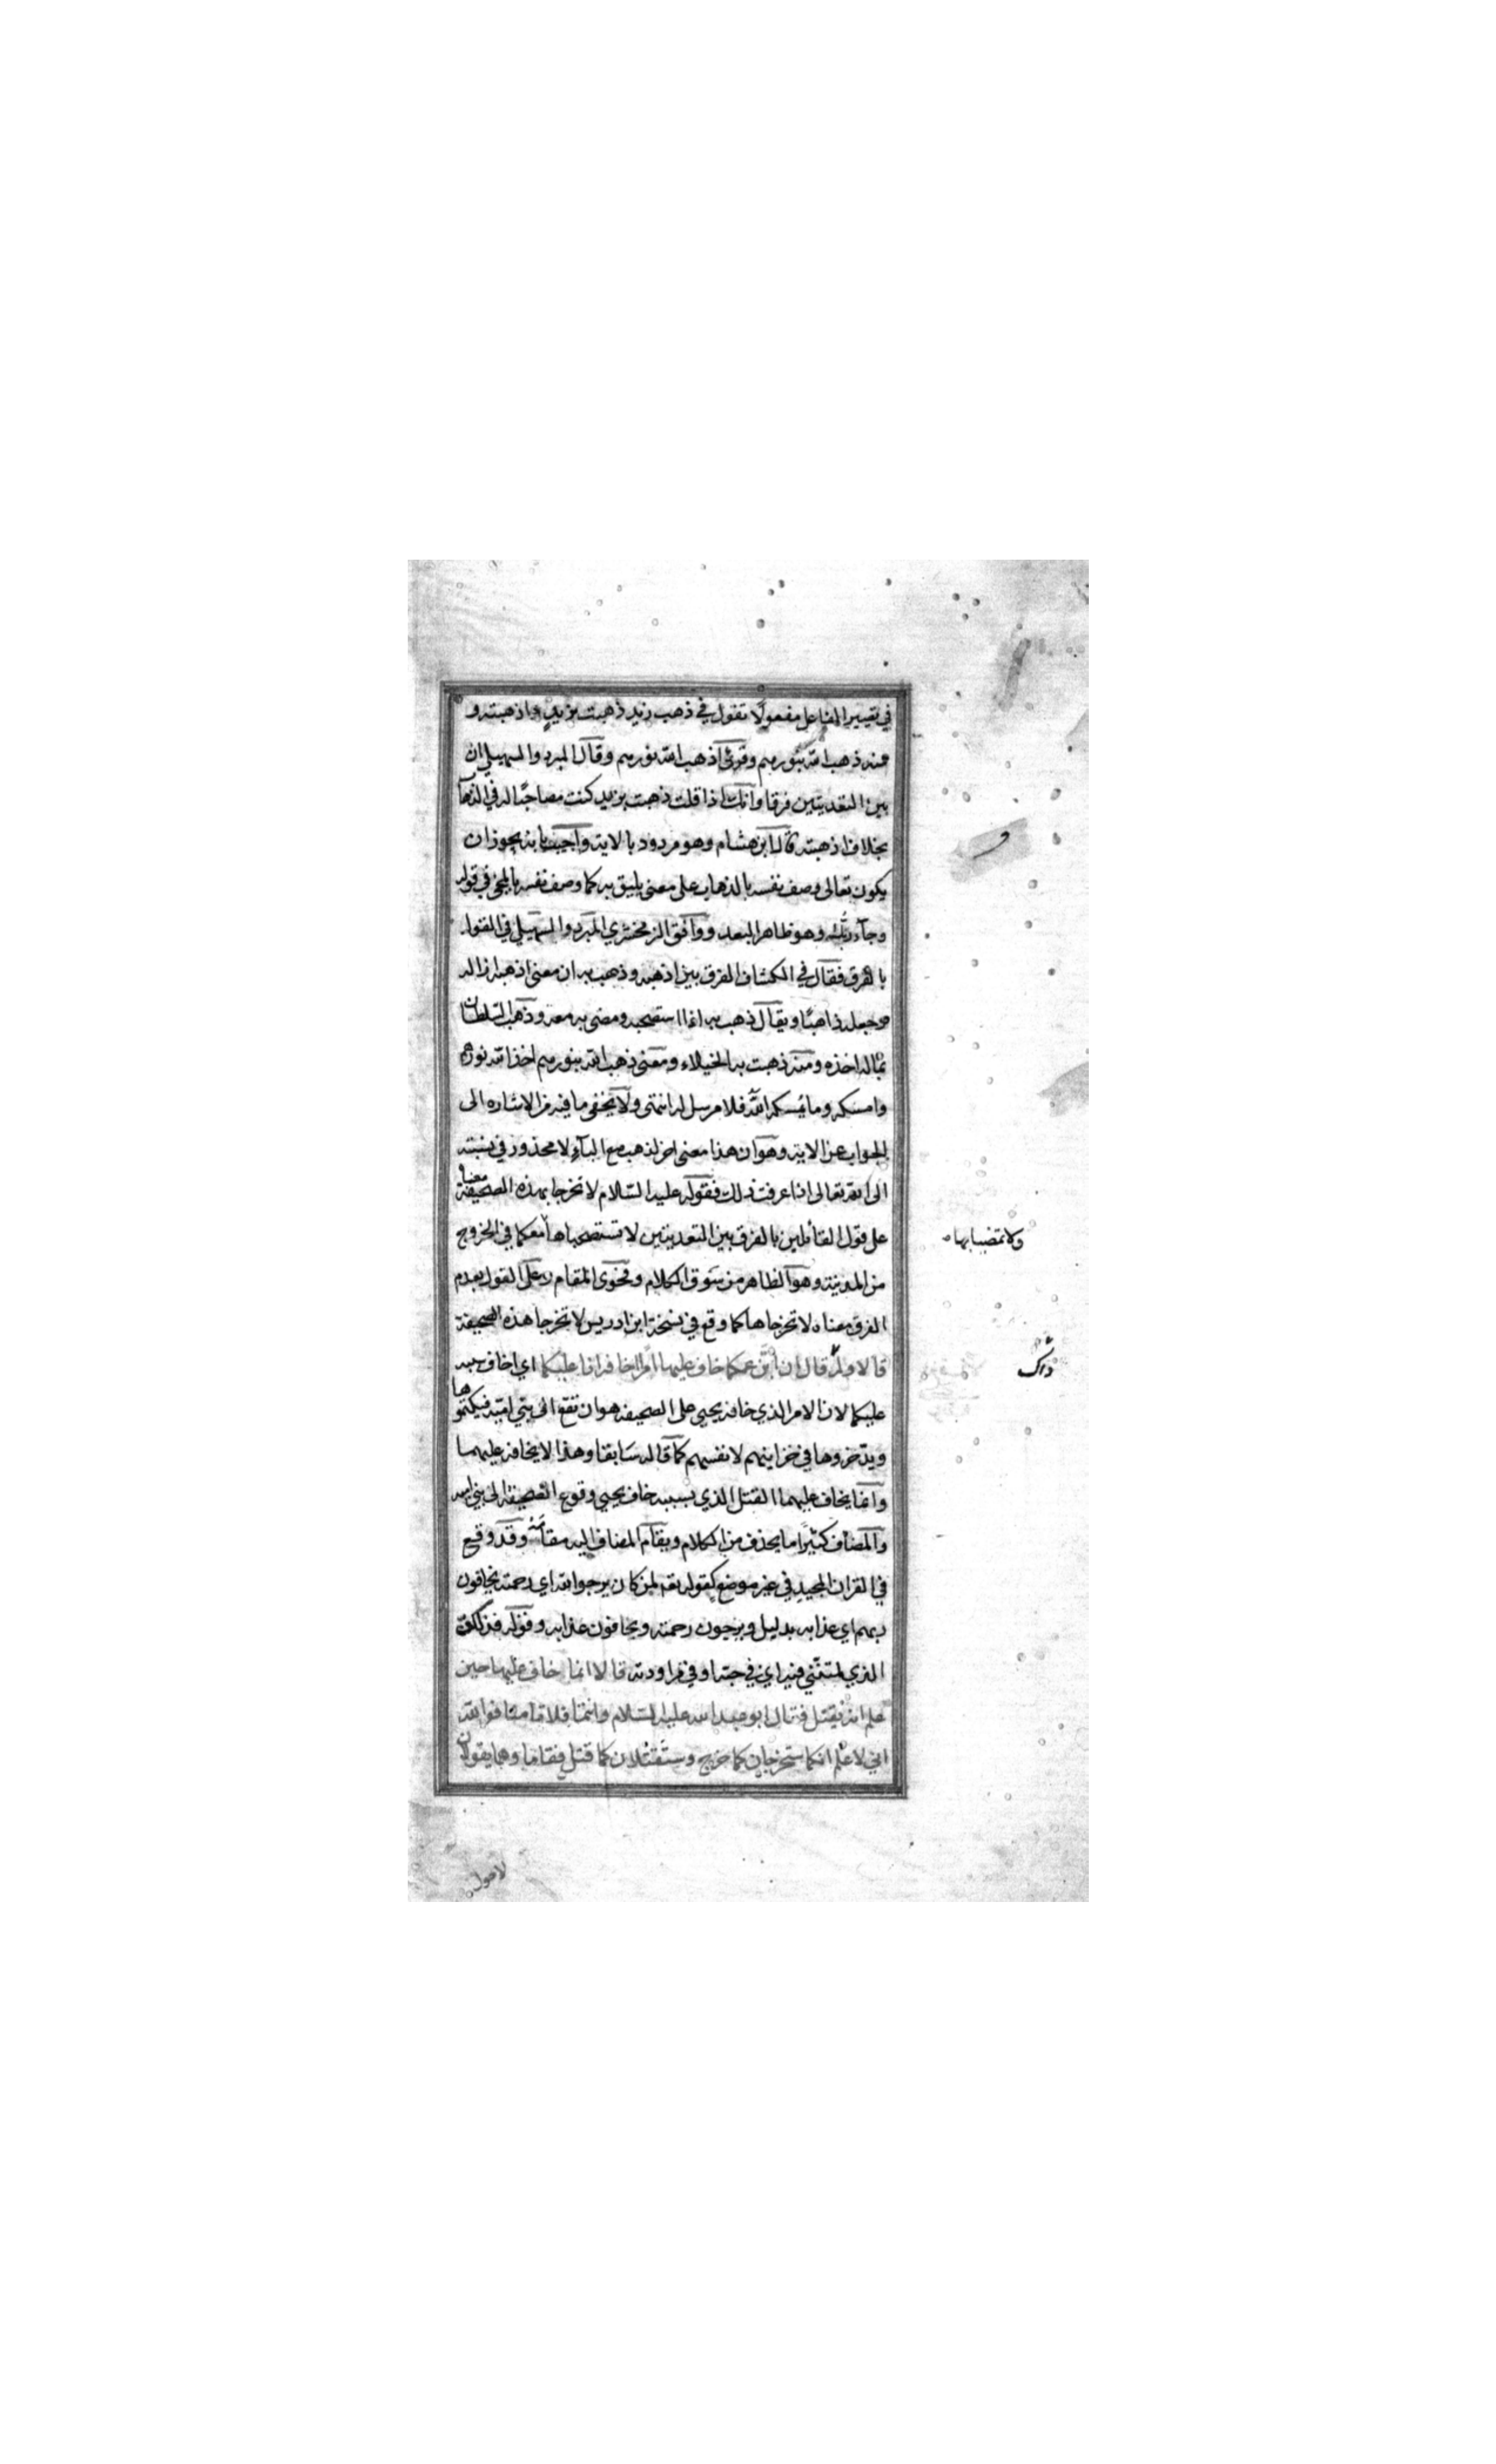 في تصيير الفاعل مفعولا تقول في ذهب زيد ذهبت بزيد واذهبته و
منه ذهب الله بنورهم وقرئ اذهب الله نورهم وقال المبرد والسهيلي ان
بين التعديتين فرقا وانك اذا قلت ذهبت بزيد كنت مصاحبًا له في الذهاب
بخلاف اذهبته قال ابن هشام وهو مردود بالاية واجيب بانه يجوز ان
يكون تعالى وصف نفسه بالذهاب على معنى يليق به كما وصف نفسه بالمجئ في قوله
وجاء ربك وهو ظاهر البعد ووافق الزمخشري المبرد والسهيلي في القول
بالفرق فقال في الكشاف الفرق بين اذهبه وذهب به ان معنى اذهبه ازاله
وجعله ذاهبًا ويقال ذهب به اذا استصحبه ومضى به معه وذهب السلطان
بماله اخذه ومنه ذهبت به الخيلاء ومعنى ذهب الله بنورهم اخذ الله نورهم
وامسكه وما يمسك الله فلا مرسل له انتهى ولا يخفى ما فيه من الاشاره الى
الجواب عن الاية وهو ان هذا معنى اخر لذهب مع الباء لا محذور في نسبته
الى الله تعالى اذا عرفت ذلك فقوله عليه السلام لا تخرجا بهذه الصحيفة معناه
على قول القائلين بالفرق بين التعديتين لا تستصحباها معكما في الخروج
ولا تمضيا بها
من المدينة وهو الظاهر من سوق الكلام وفحوى المقام وعلى القول بعدم
الفرق معناه لا تخرجاها كما وقع في نسخة ابن ادريس لا تخرجا هذه الصحيفة
قالا ولم قال ان ابن عمكما خاف عليها امرا اخافه انا عليكما اي اخاف سببه
ذاك
عليكما لان الامر الذي خافه يحيى على الصحيفه هو ان تقع الى بني اميه فيكتموها
ويدخروها في خزاينهم لانفسهم كما قاله سابقا وهذا لا يخافه عليهما
وانما يخاف عليهما القتل الذي بسببه خاف يحيى وقوع الصحيفة الى بني اميه
والمضاف كثيرًا ما يحذف من الكلام ويقام المضاف اليه مقامه وقد وقع
في القران المجيد في غير موضع كقوله تعم لمن كان يرجو الله اي رحمته يخافون
ربهم اي عذابه بدليل ويرجون رحمته ويخافون عذابه وقوله فذلكن
الذي لمتنني فيه اي في حبه او في مراودته قالا انما خاف عليها حين
علم انه يقتل فقال ابو عبد الله عليه السلام وانتما فلا تامنا فوالله
اني لاعلم انكما ستخرجان كما خرج وستقتلان كما قتل فقاما وهما يقولان
لا حول